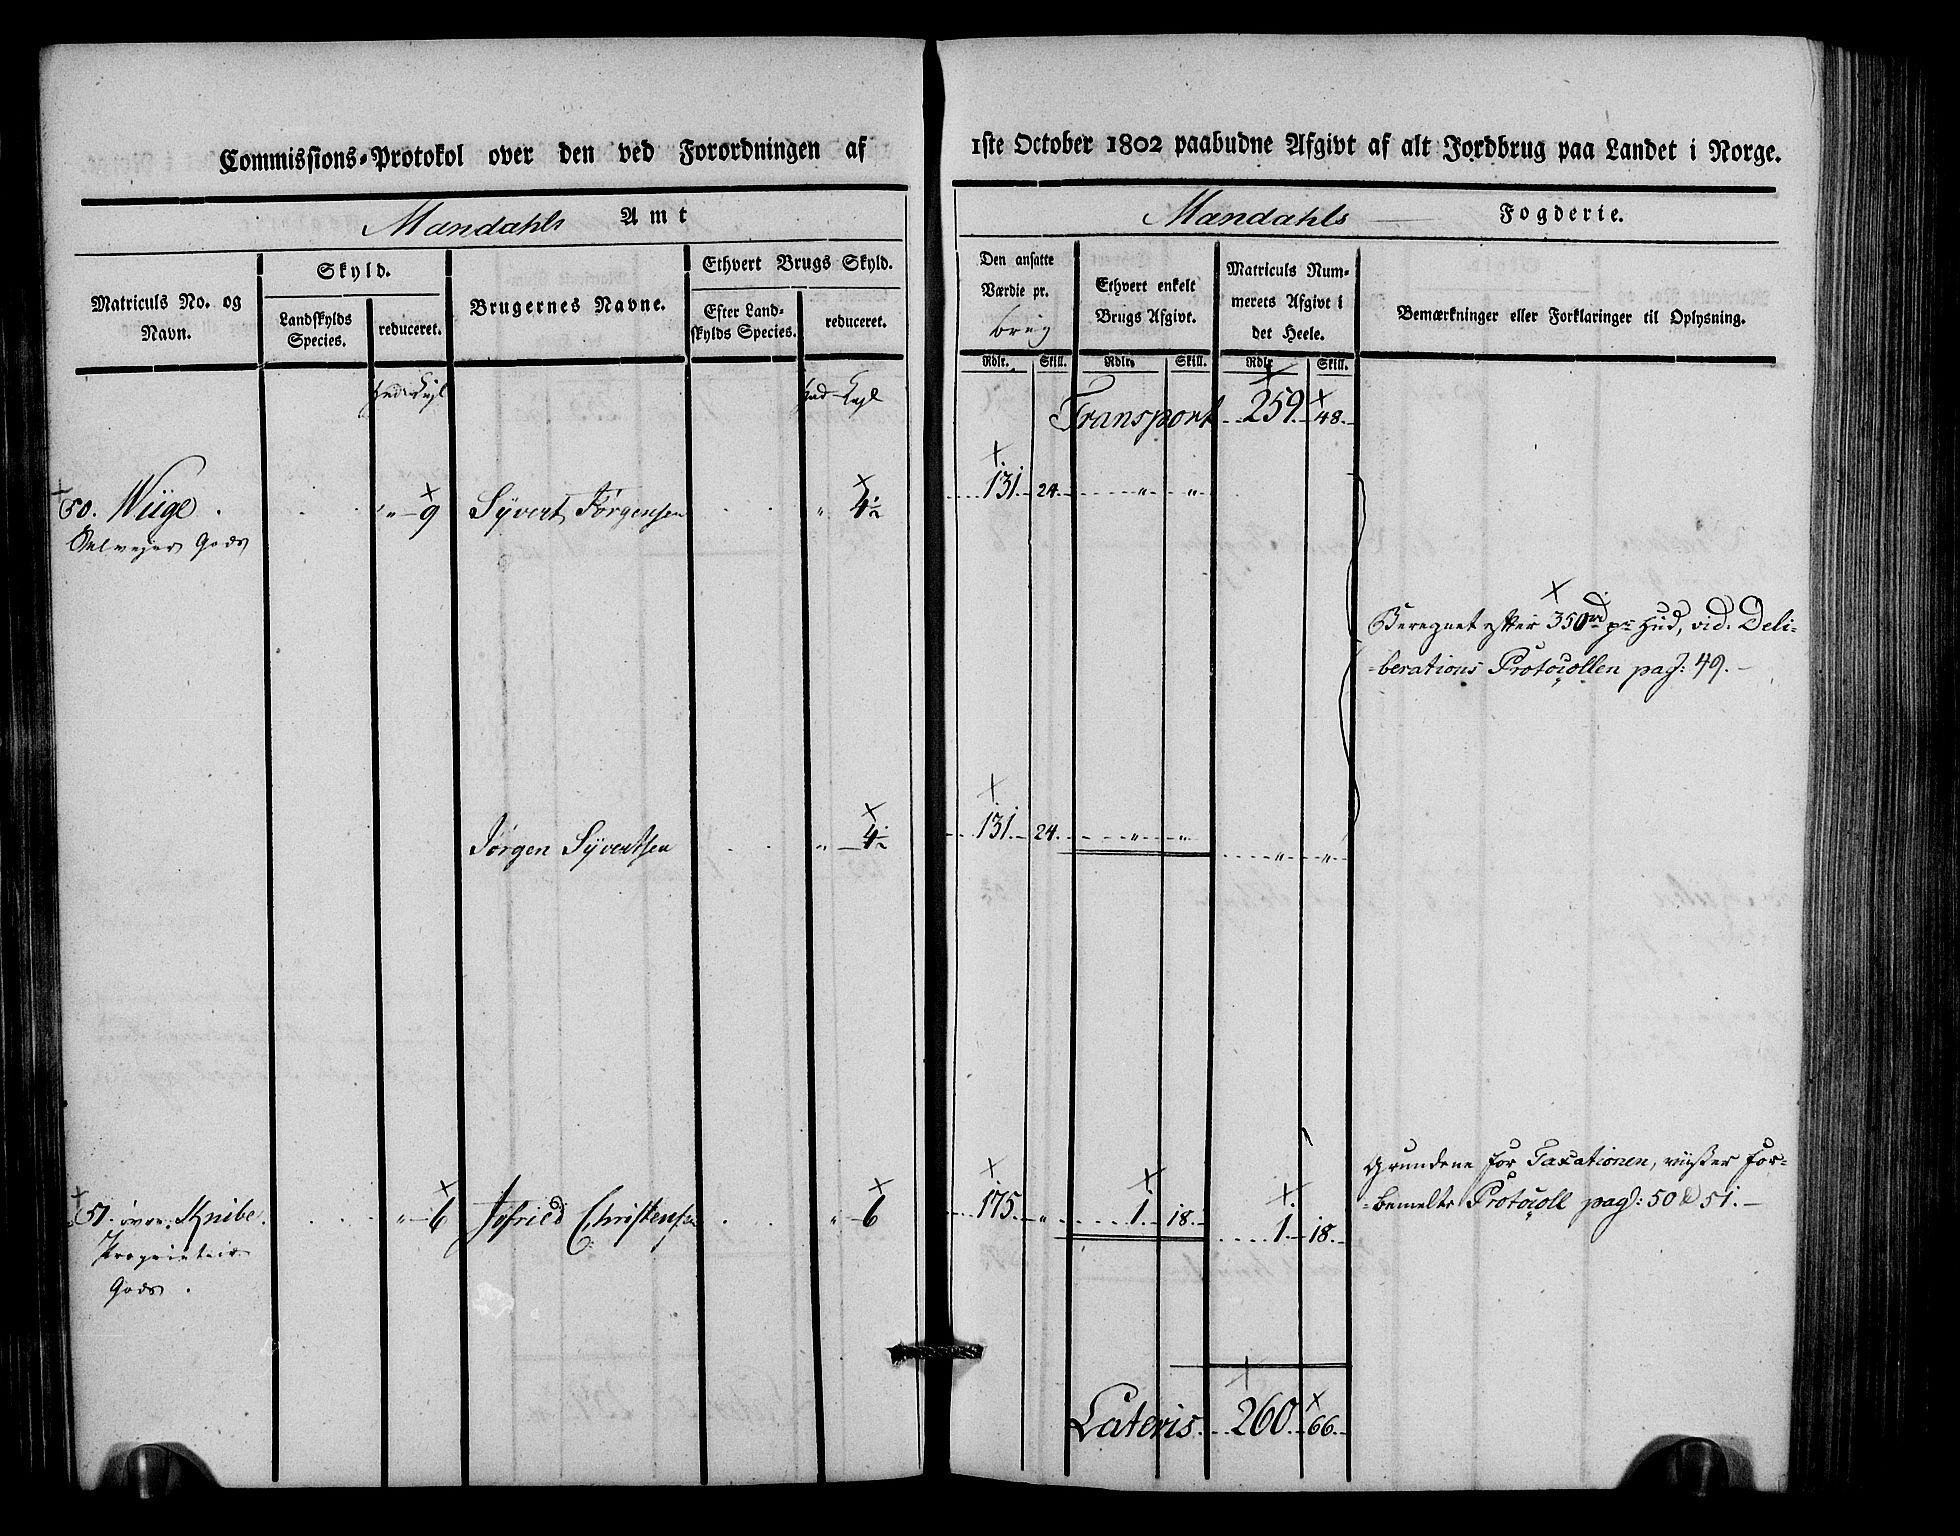 Commissions-Protokol over den ved Forordningen af
Mandahls Amt
Matriculs No. og Navn.
Skyld.
Landskylds Species.
reduceret.
Brugernes Navne.
Ethvert Brugs Skyld.
Efter Land-
skylds Species.
reduceret.
Hud
Hud
50. Wiige . . . . „ 9 Syvert Jørgensen . . „ 4½
Selvejer Gods
Jørgen Syvertsen . . „ 4½
51. øvre Knibe. . . . „ 6 Jofried Christensen . . „ 6
Proprietair
Gods .
1ste October 1802 paabudne Afgivt af alt Jordbrug paa Landet i Norge.
Mandahls Fogderie.
Den ansatte
Værdie pr.
brug
Ethvert enkelt
Brugs Afgivt.
Matriculs Num-
merets Afgivt i
det Heele.
Bemærkninger eller Forklaringer til Oplysning.
Rdlr. Skill. Rdlr. Skill. Rdlr. Skill.
Transport 259. 48.
131. 24. „ „
Beregnet efter 350 rd pr Hud, vid. Deli-
-berations Protocollen pag: 49.-
131. 24. „ „ „ „
Grundene for Taxationen, viiser for-
-bemelte Protocoll pag: 50 & 51.-
175. „ 1. 18. 1. 18.
Lateris 260. 66.